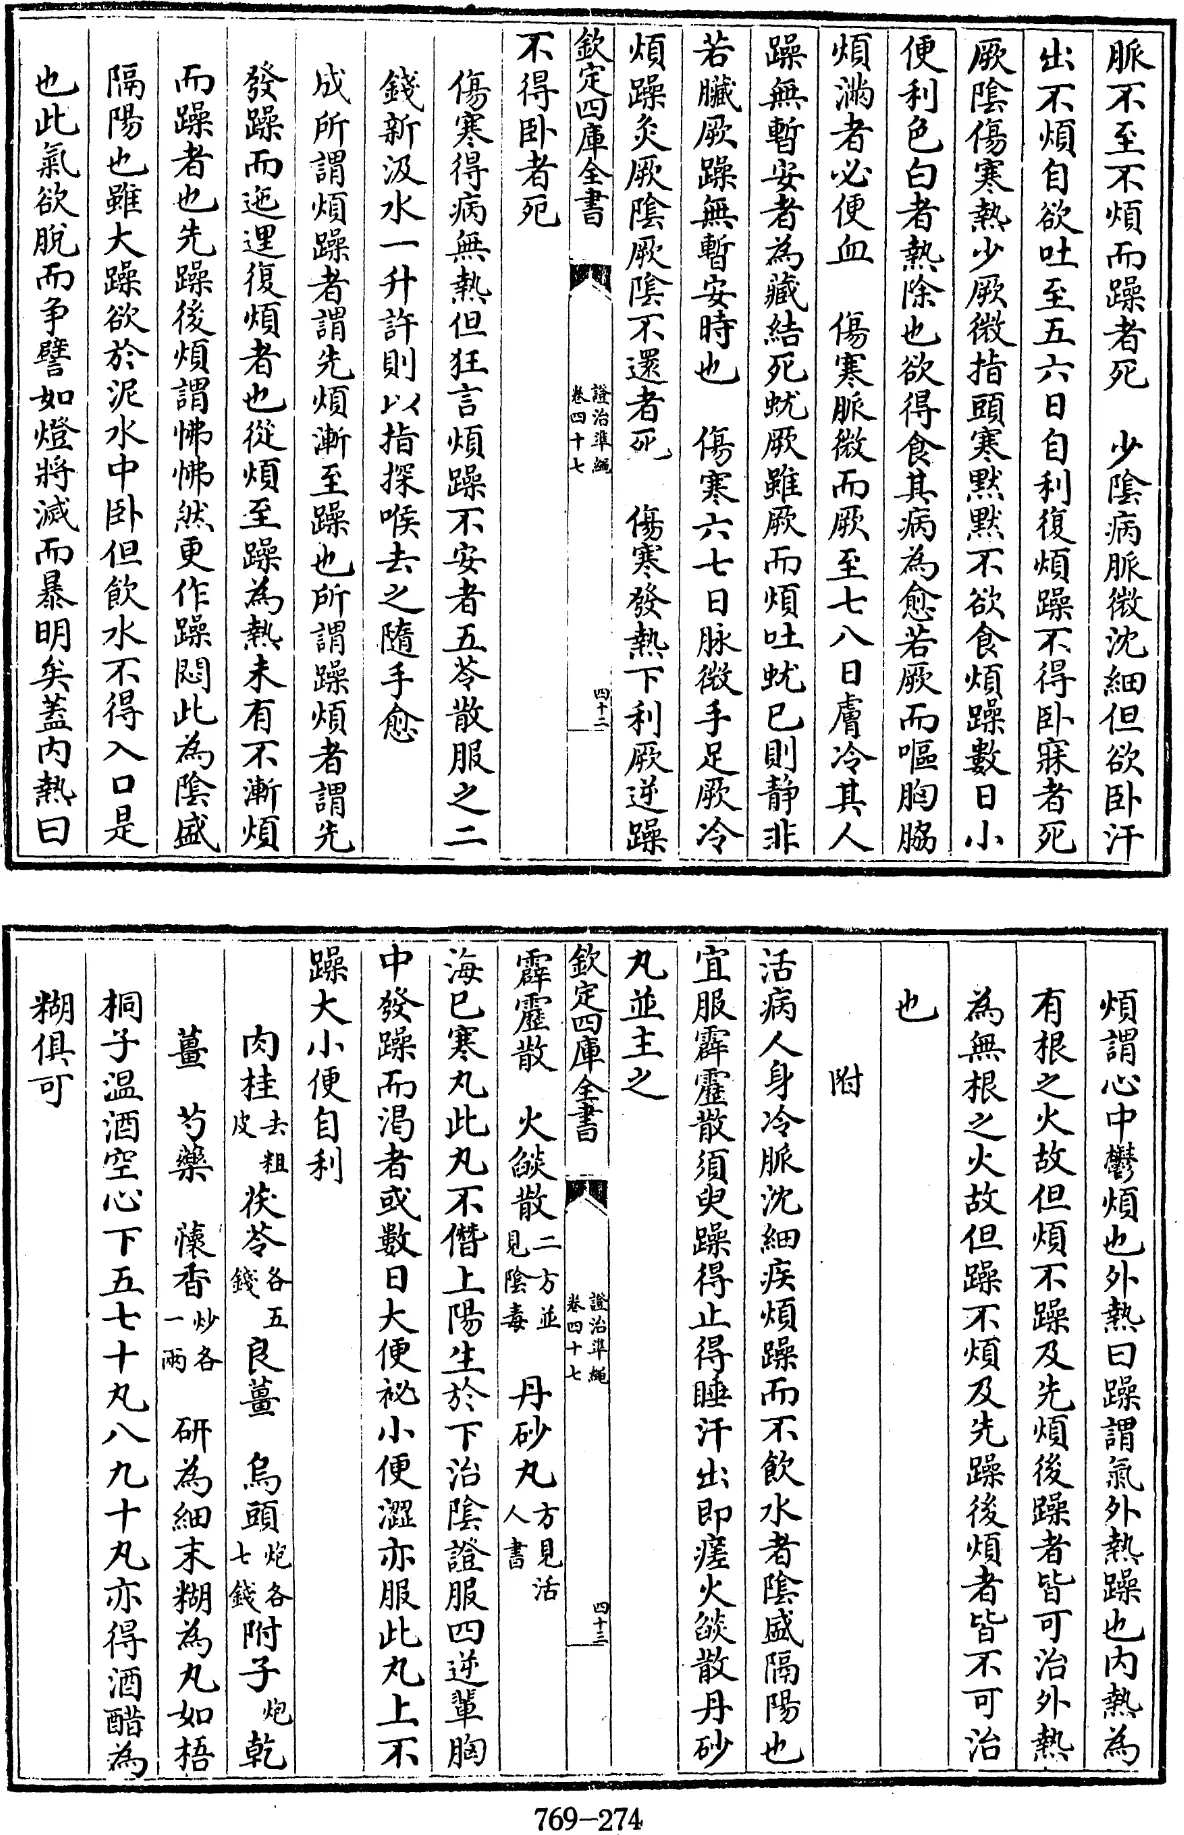 脈不至不煩而躁者死　少陰病脈微沈細但欲卧汗
出不煩自欲吐至五六日自利復煩躁不得卧寐者死
厥陰傷寒熱少厥微指頭寒黙黙不欲食煩躁數日小
便利色白者熱除也欲得食其病為愈若厥而嘔胸脇
煩滿者必便血　傷寒脈微而厥至七八日膚冷其人
躁無暫安者為藏結死蚘厥雖厥而煩吐蚘已則静非
若臟厥躁無暫安時也　傷寒六七日脉微手足厥冷
煩躁灸厥陰厥陰不還者死　傷寒發熱下利厥逆躁
欽定四庫全書
證治準繩
卷四十七
四十二
不得卧者死
傷寒得病無熱但狂言煩躁不安者五苓散服之二
錢新汲水一升許則以指探喉去之隨手愈
成所謂煩躁者謂先煩漸至躁也所謂躁煩者謂先
發躁而迤逦復煩者也從煩至躁為熱未有不漸煩
而躁者也先躁後煩謂怫怫然更作躁悶此為陰盛
隔陽也雖大躁欲於泥水中卧但飲水不得入口是
也此氣欲脫而争譬如燈將滅而暴明矣蓋内熱曰
煩謂心中鬱煩也外熱曰躁謂氣外熱躁也内熱為
有根之火故但煩不躁及先煩後躁者皆可治外熱
為無根之火故但躁不煩及先躁後煩者皆不可治
也
附
活病人身冷脈沈細疾煩躁而不飲水者陰盛隔陽也
宜服霹靂散須臾躁得止得睡汗出即瘥火燄散丹砂
丸並主之
欽定四庫全書
證治準繩
卷四十七
四十三
霹靂散　火燄散二方並見陰毒　丹砂丸方見活人書
海已寒丸此丸不僭上陽生於下治陰證服四逆輩胸
中發躁而渴者或數日大便祕小便澀亦服此丸上不
躁大小便自利
肉桂去粗皮　茯苓各五錢　良薑　烏頭炮各七錢　附子炮　乾
薑　芍藥　懷香炒各一兩　研為細末糊為丸如梧
桐子温酒空心下五七十丸八九十丸亦得酒醋為
糊俱可
769-274